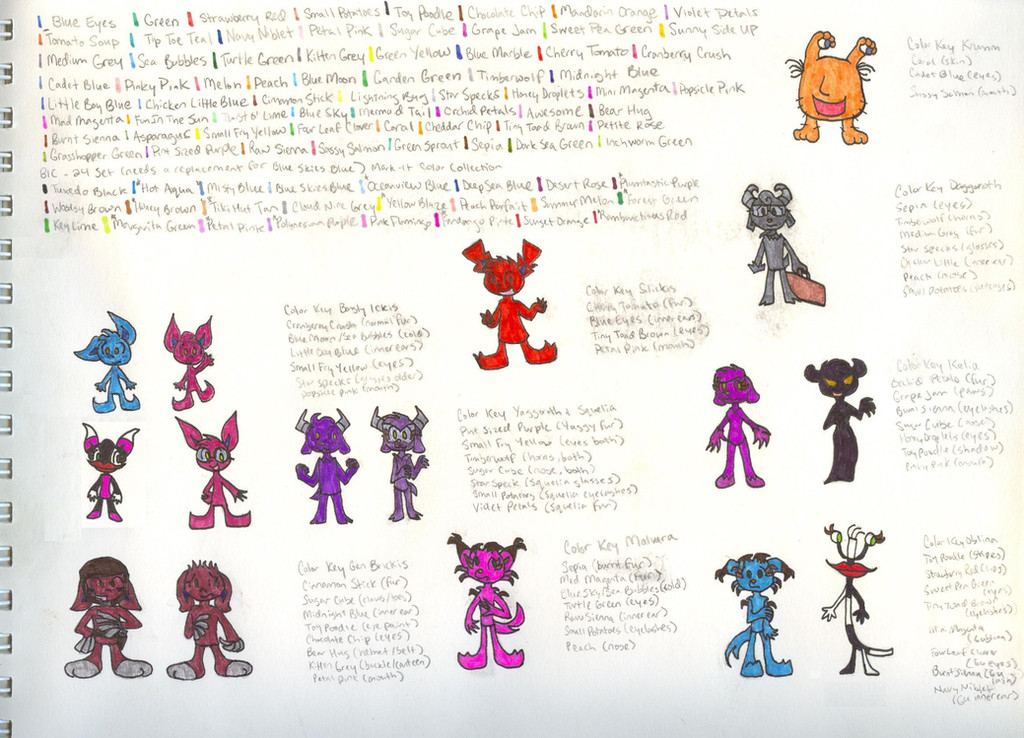 Blue Eyes Green Strawberry Red Small Potatoes Toy Poodle Chocolate Chip Mandarin Orange Violet Petals
Tomato Soup Tip Toe Teal Navy Niblet Petal Pink Sugar Cube Grape Jam Sweet Pea Green Sunny Side UP
Medium Grey Sea Bubbles Turtle Green Kitten Grey Green Yellow Blue Marble Cherry Tomato Cranberry Crush
Cadet Blue Pinky Pink Melon Peach Blue Moon Garden Green Timberwolf Midnight Blue
Little Boy Blue Chicken Little Blue Cinnamon Stick Lightning Bug Star Specks Honey Droplets Mini Magenta Popsicle Pink
Mad Magenta Fun In The Sun Twist o' Lime Blue Sky Mermaid Tail Orchid Petals Awesome Bear Hug
Burnt Sienna Asparagus Small Fry Yellow Four Leaf Clover Coral Cheddar Chip Tiny Toad Brown Petite Rose
Grasshopper Green Pint Sized Purple Raw Sienna Sassy Salmon Green Sprout Sepia Dark Sea Green Inchworm Green
BIC - 24 Set (needs a replacement for Blue Skies Blue) Mark-It Color Collection
Tuxedo Black Hot Aqua Misty Blue Blue Skies Blue Oceanview Blue Deep Sea Blue Desert Rose Plumtastic Purple
Woodsy Brown Husky Brown Tiki Hut Tan Cloud Nine Grey Yellow Blaze Peach Parfait Summer Melon Forest Green
Key Lime Margarita Green Petal Pink Polynesian Purple Pink Flamingo Fandango Pink Sunset Orange Rambunctious Red
Color Key Krumm
Coral (skin)
Cadet Blue (eyes)
Sassy Salmon (mouth)
Color Key Daggoroth
Sepia (eyes)
Timberwolf (horns)
Medium Grey (fur)
Star Specks (glasses)
Chicken Little (inner ear)
Peach (nose)
Small Potatoes
Color Key Slickis
Cherry Tomato (fur)
Blue Eyes (inner ear)
Tiny Toad Brown (eyes)
Petal Pink (mouth)
Color Key Ickis
Cranberry Crush (normal fur)
Blue Moon/Sea Bubbles (cold)
Little Boy Blue (inner ears)
Small Fry Yellow (eyes)
Star Specks
Popsicle pink (mouth)
Color Key Yaggoroth & Squelia
Pint Sized Purple (Yaggy fur)
Small Fry Yellow (eyes both)
Timberwolf (horns, both)
Sugar Cube (nose, both)
Star Speck (Squelia glasses)
Small Potatoes (Squelia eyelashes)
Violet Petals (Squelia fur)
Color Key
Orchid Petals (fur)
Grape Jam
Burnt Sienna (eyelashes)
Sugar Cube (nose)
Honey Droplets (eyes)
Toy Poodle (shadow)
Pinky Pink (mouth)
Color Key Gen Brickis
Cinnamon Stick (fur)
Sugar Cube
Midnight Blue (inner ear)
Toy Poodle (eye paint)
Chocolate Chip (eyes)
Bear Hug (helmet/belt)
Kitten Grey (buckle/canteen)
Petal pink (mouth)
Color Key
Sepia (burnt fur)
Mad Magenta (fur)
Blue Sky/Sea Bubbles (cold)
Turtle Green (eyes)
Raw Sienna (inner ear)
Small Potatoes (eyelashes)
Peach (nose)
Color Key Oblina
Toy Poodle (stripes)
Strawberry Red (lips)
Sweet Pea Green
(eyes)
Tiny Toad Brown
(eyelashes)
Mini Magenta
Four Leaf Clover
(Gu eyes)
Burnt Sienna
Navy Niblet
(Gu inner ear)